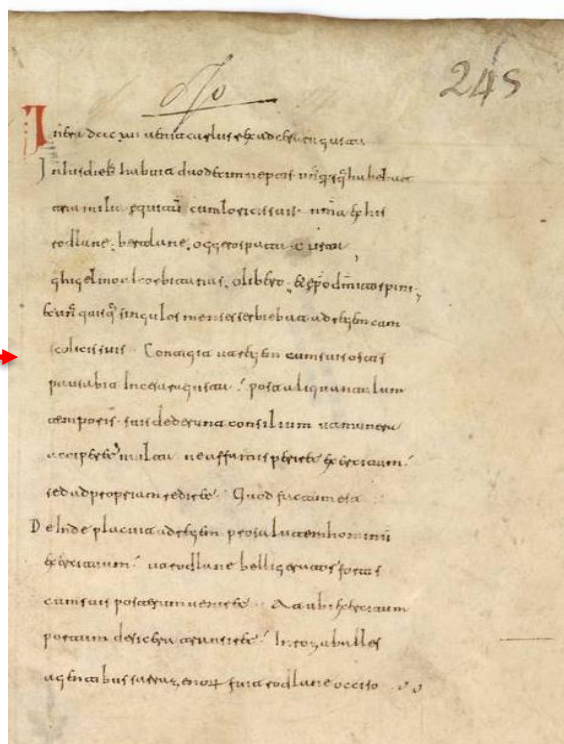 245
In era dcccxvi uenit carlus rex ad cesaragusta
In his diebꝰ habuit duodecim neptis unꝰqꝫsqꝫ habebat
tria milia equitū cum loricis suis · nīa ex his
rodlane · bertlane · oggero spata curta ·
ghigelmo alcorbitanas · olibero · et epō dñi torpini ·
Et unꝰ quisqꝫ singulos menses serbiebat ad regem cum
scolicis suis · Contigit ut regem cum suis ostis
pausabit In cesaragusta · post aliquantulum
temporis · suis dederunt consilium ut munera
acciperet multa · ne a ffamis periret exercitum ·
sed ad propriam rediret · Quod factum est
Deinde placuit ad regem pro salutem hominū
exercituum · ut rodlane belligerator fortis
cum suis posterum ueniret · At ubi exercitum
portum de sicera transiret · In rozaballes
a gentibus sarrazenorꝫ fuit rodlane occiso